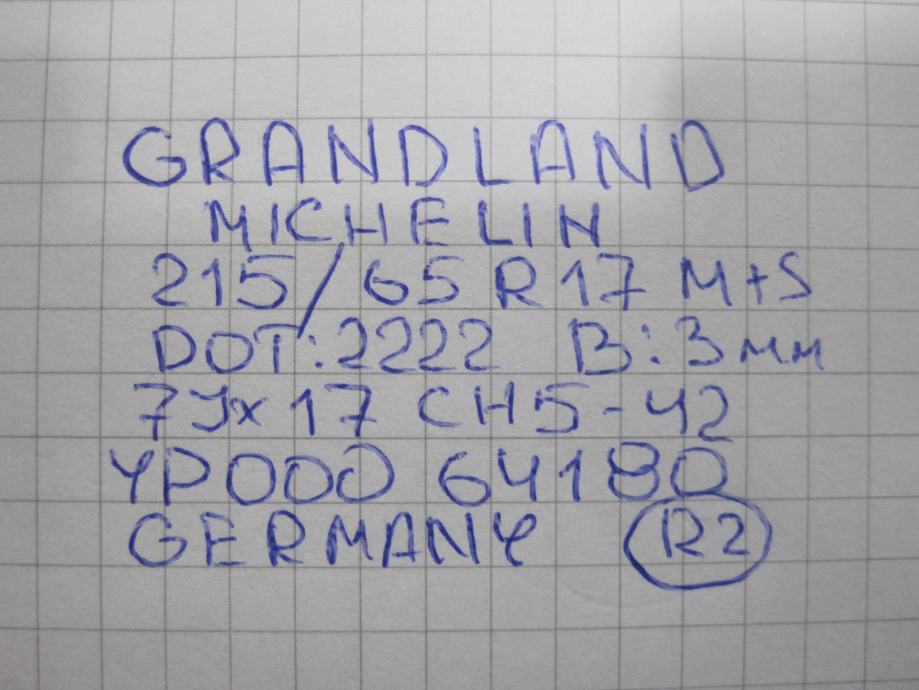 GRANDLAND
MICHELIN
215/65 R 17 M+S
DOT:2222 B:3мм
7Jx17 CH5-42
YP000 64180
GERMANY R2